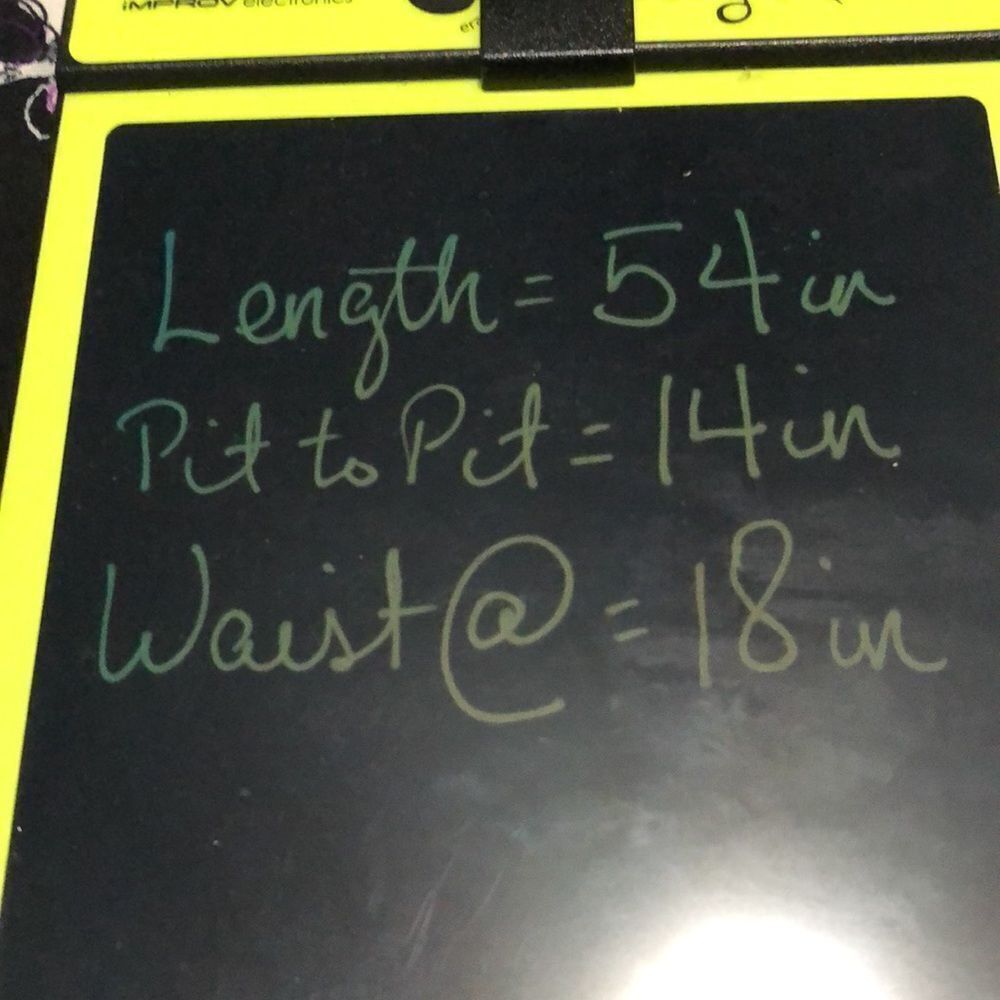 iMPROV electronics
Length = 54 in
Pit to Pit = 14 in
Waist @ = 18 in